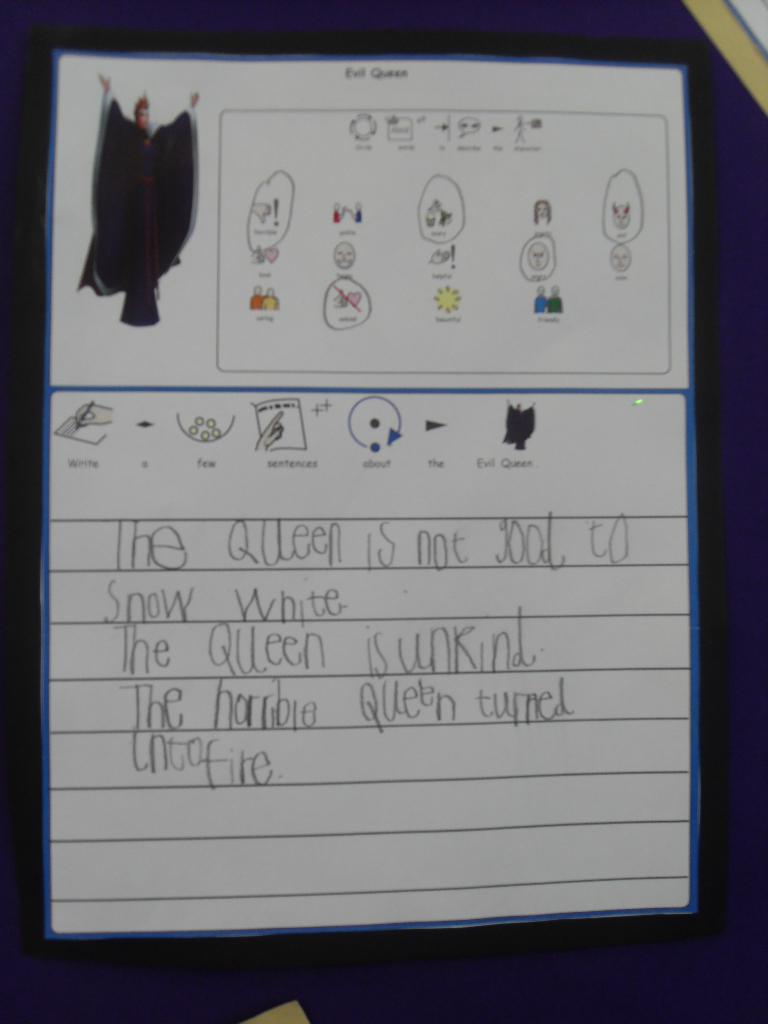 Evil Queen
Circle words to describe the character
horrible polite scary evil
kind happy helpful angry calm
caring unkind beautiful friendly
Write a few sentences about the Evil Queen.
The Queen is not good to
Snow White.
The Queen is unkind.
The horrible Queen turned
into fire.